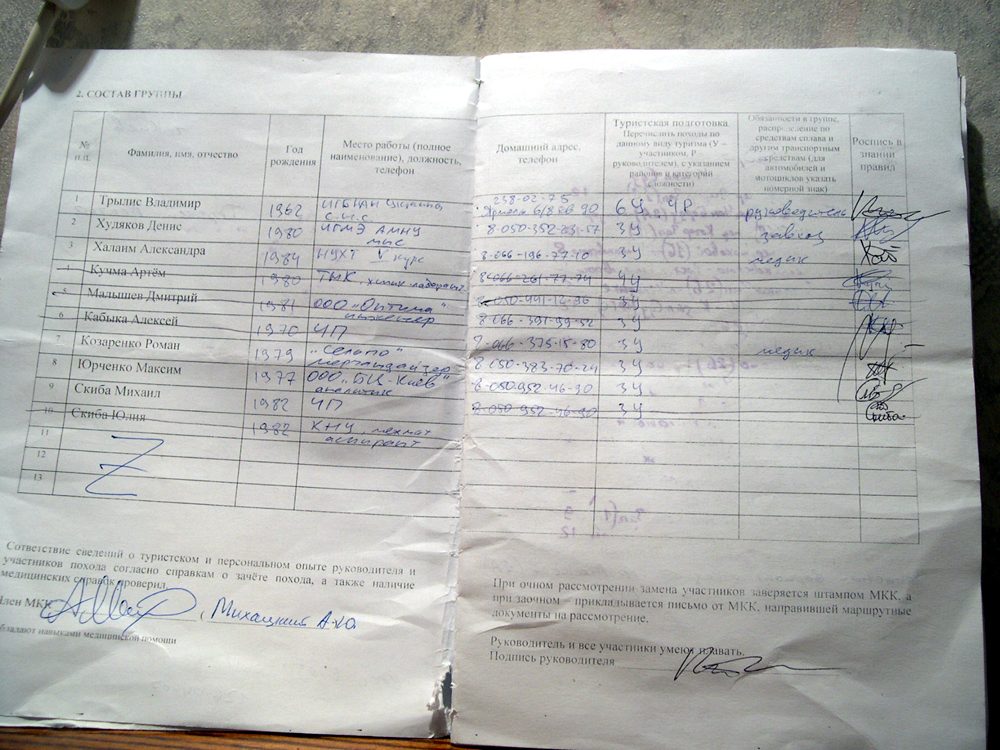 2. СОСТАВ ГРУППЫ
№ п.п.
Фамилия, имя, отчество
Год рождения
Место работы (полное наименование), должность, телефон
Домашний адрес, телефон
Туристская подготовка. Перечислить походы по данному виду туризма (У – участником, Р – руководителем), с указанием районов и категорий сложности)
Обязанности в группе, распределение по средствам сплава и другим транспортным средствам (для автомобилей и мотоциклов указать номерной знак)
Роспись в знании правил
1 Трылис Владимир 1962 с.н.с. 238-02-75 6У 4Р руководитель
2 Худяков Денис 1980 ИГМЭ АМНУ мнс 8-050-352-23-57 3У завхоз
3 Халаим Александра 1984 НУХТ V курс 8-066-196-77-10 3У медик
4 Кучма Артём 1980 8-066-261-77-74 4У
5 Малышев Дмитрий 1981 ООО „Оптима" инженер 8-050-441-16-96 3У
6 Кабыка Алексей 1970 ЧП 8-066-391-99-52 3У
7 Козаренко Роман 1979 мерчандайзер 8-066-375-15-80 3У медик
8 Юрченко Максим 1977 ООО „БК-Киев" аналитик 8-050-383-70-24 3У
9 Скиба Михаил 1982 ЧП 8-050-952-46-90 3У
10 Скиба Юлия 1982 КНУ, мехмат аспирант 8-050-952-46-90 3У
11
12
13
Z
Сответствие сведений о туристском и персональном опыте руководителя и
участников похода согласно справкам о зачёте похода, а также наличие
медицинских справок проверил
Член МКК
обладают навыками медицинской помощи
При очном рассмотрении замена участников заверяется штампом МКК, а
при заочном – прикладывается письмо от МКК, направившей маршрутные
документы на рассмотрение.
Руководитель и все участники умеют плавать.
Подпись руководителя